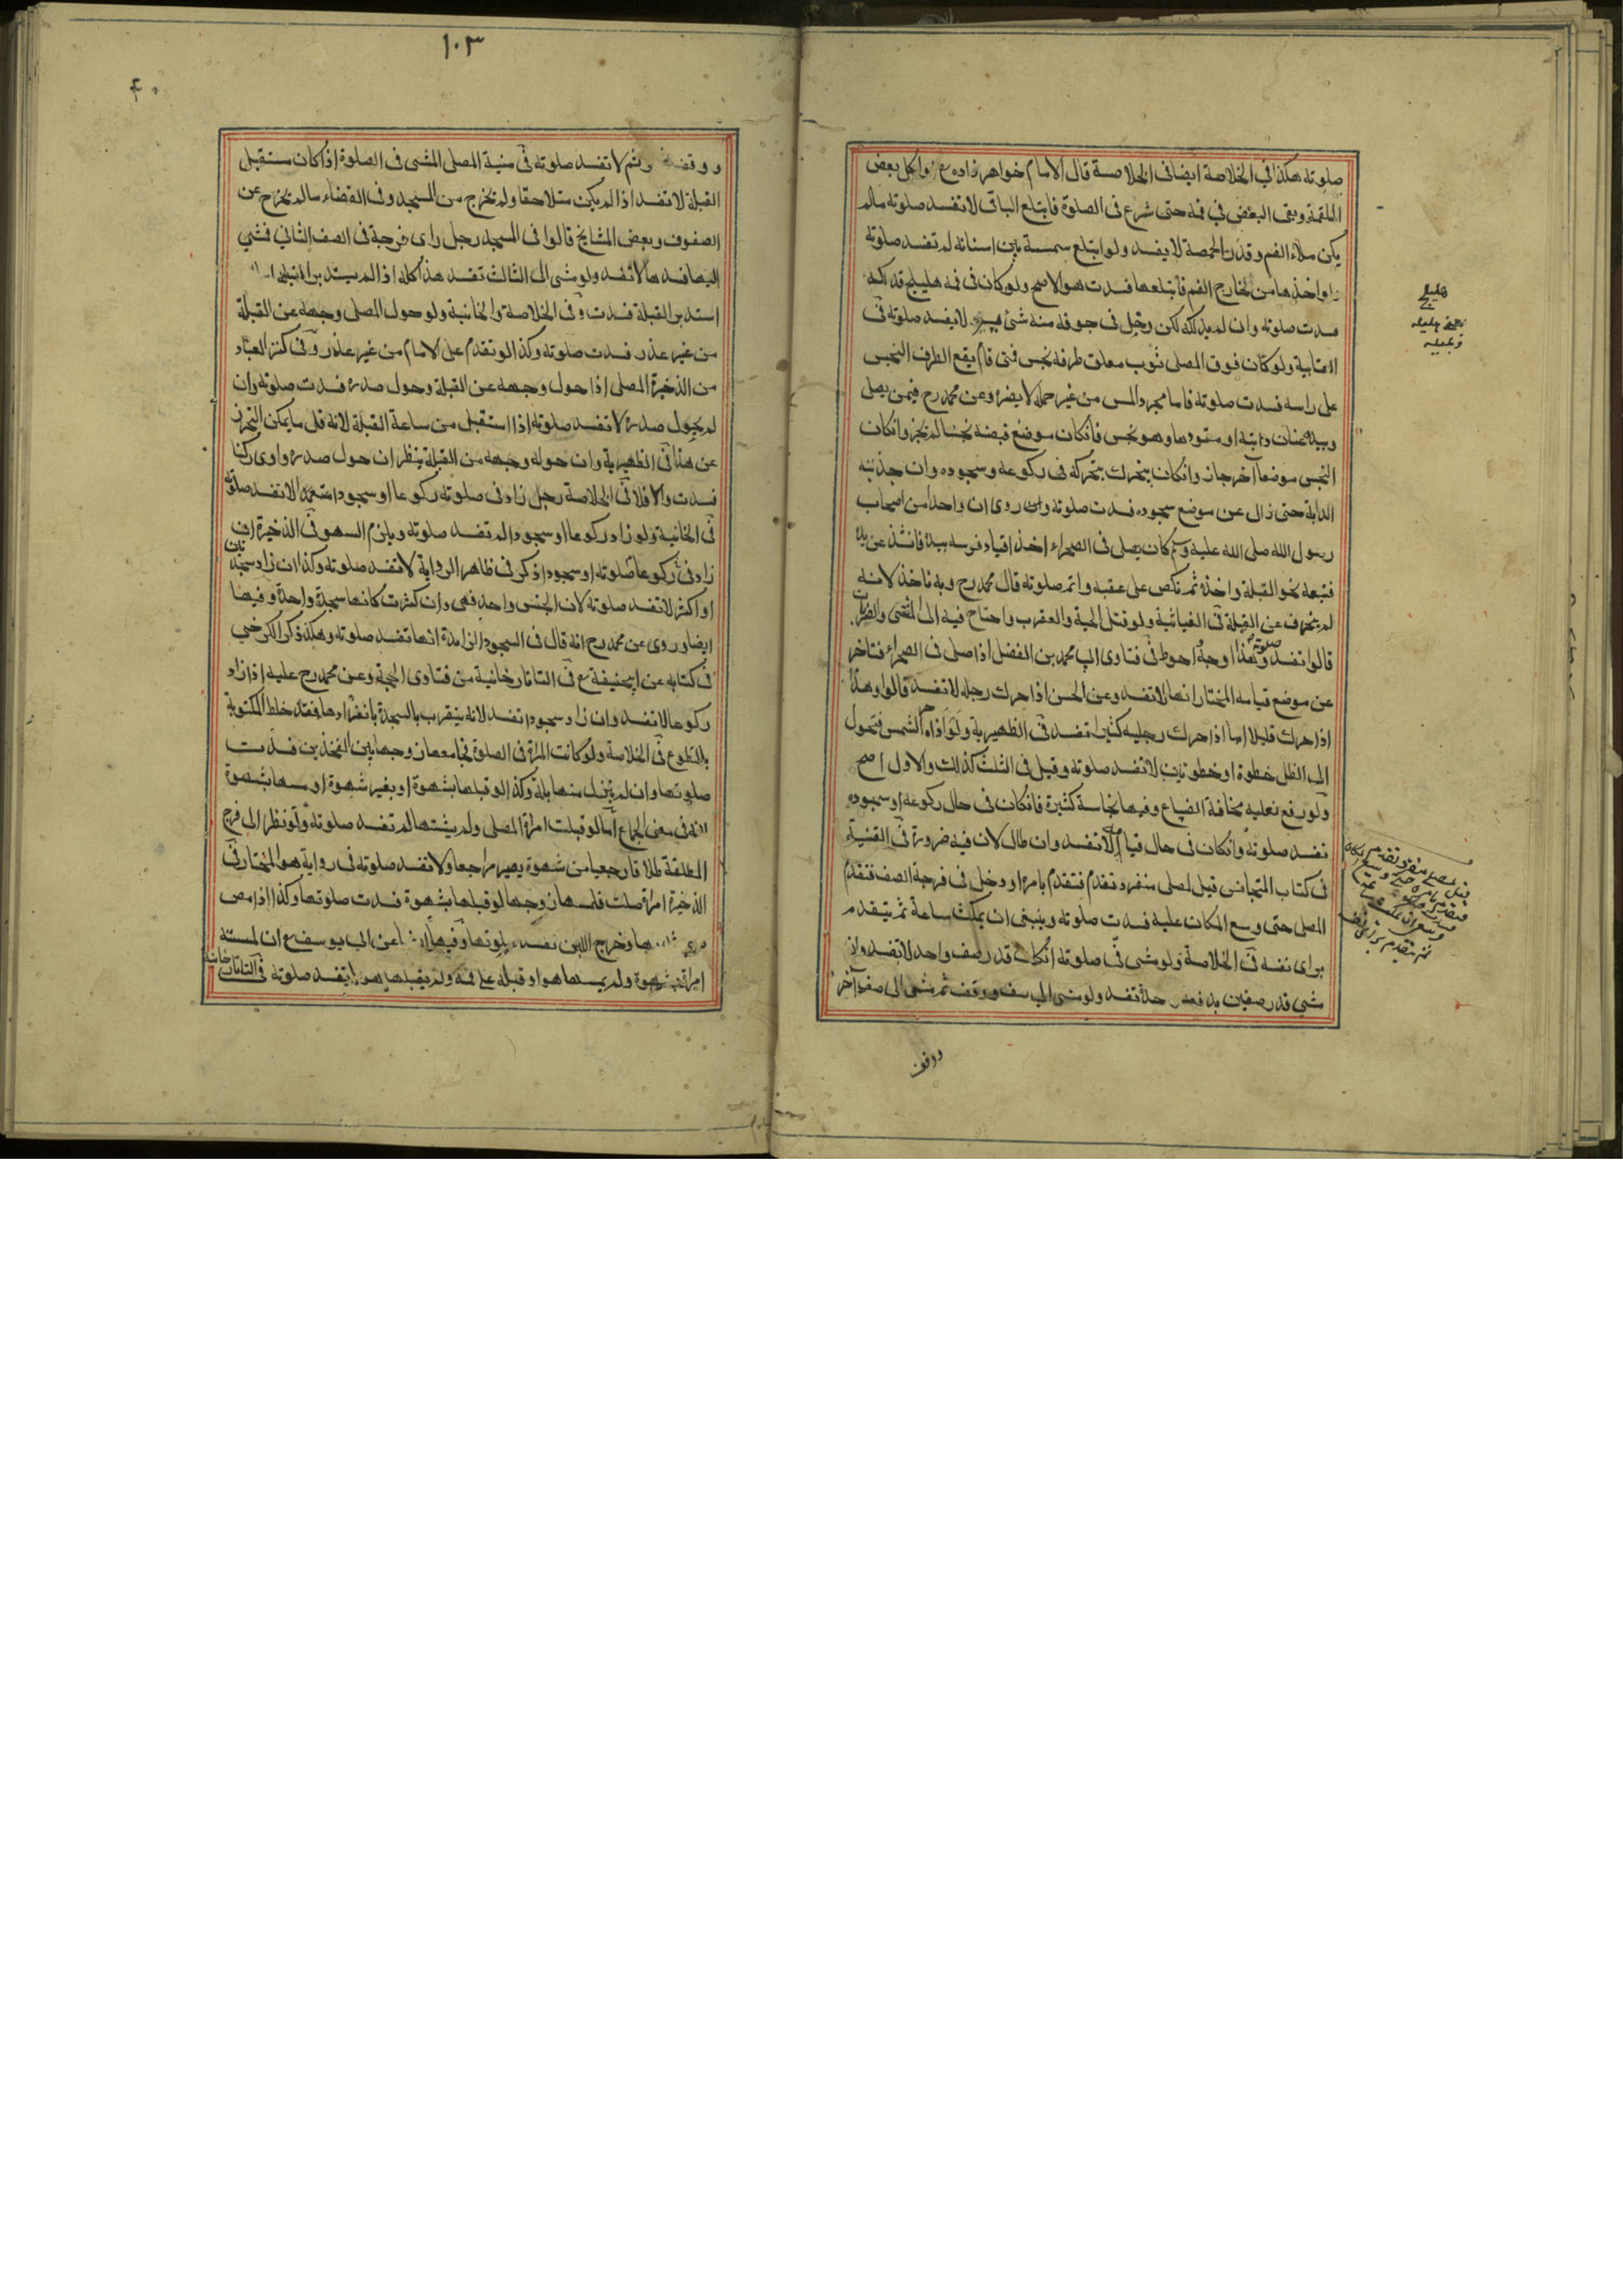 صلوته هكذا في الخلاصة ايضا في الخلاصة قال الامام خواهر زاده رع اذا اكل بعض
اللقمة وبقى البعض في فمه حتى شرع فى الصلوة فابتلع الباقى لا تفسد صلوته مالم
يكن ملاء الفم وقدر الحمصة لا يفسد ولو ابتلع سمسمة بين اسنانه لم تفسد صلوته
واواخذها من خارج الفم فابتلعها فسدت هو الاصح ولو كان فى فمه هليلج قد لاكه
فسدت صلوته وان لم يلكه لكن دخل فى جوفه منه شئ يسير لا يفسد صلوته فى
العتابية ولو كان فوق المصلى ثوب معلق طرفه نجس فمتى قام يقع الطرف النجس
على راسه فسدت صلوته فاما مجرد المس من غير حمل لا يضره وعن محمد رح فيمن يصلى
وبيده عنان دابته او مقودها وهو نجس فانكان موضع قبضه نجسا لم يجز وانكان
النجس موضعا آخر جاز وانكان يتحرك بتحركه فى ركوعه وسجوده وان جذبته
الدابة حتى زال عن موضع سجوده فسدت صلوته روى ان واحدا من اصحاب
رسول الله صلى الله عليه وسم كان يصلى فى الصحراء اخذ اقياد فرسه بيده فانشذ عن يده
فتبعه نحو القبلة واخذه ثم نكص على عقبه واتم صلوته قال محمد رح وبه ناخذ لانه
لم ينحرف عن القبلة فى الغياثية ولو قتل الحية والعقرب واحتاج فيه الى المشى والضربات
قالوا تفسد صلوته وهذا اوجه احوط فى فتاوى ابى محمد بن الفضل اذا صلى فى الصحراء فتاخر
عن موضع قيامه المختار انها لا تفسد وعن الحسن اذا حرك رجله لا تفسد قالوا وهذا
اذا حرك قليلا اما اذا حرك رجليه كثيرا تفسد فى الظهيرية ولو اذاه حر الشمس فتحول
الى الظل خطوة او خطوتين لا تفسد صلوته وقيل فى الثلث كذلك والاول اصح
ولو رفع نعليه مخافة الضياع وفيها نجاسة كثيرة فانكان فى حال ركوعه او سجوده
تفسد صلوته وانكان فى حال قيامه لا تفسد وان طال لان فيه ضرورة فى القنية
فى كتاب المتجانس قيل لمصلى منفرد تقدم فتقدم بامره او دخل فى فرجة الصف فتقدم
المصلى حتى وسع المكان عليه فسدت صلوته وينبغى ان يمكث ساعة ثم يتقدم
براى نفسه فى الخلاصة ولو مشى فى صلوته انكان قدر صف واحد لا تفسد وان
مشى قدر صفين بدفعة واحدة تفسد ولو مشى الى صف ووقف ثم مشى الى صف آخر
هليلج
ووقف
١٠٣
٤٠
ووقف وثم لا تفسد صلوته فى منية المصلى المشى فى الصلوة اذا كان مستقبل
القبلة لا تفسد اذا لم يكن متلاحقا ولم يخرج من المسجد وفى الفضاء مالم يخرج عن
الصفوف وبعض المشايخ قالوا فى المسجد رجل راى فرجة فى الصف الثانى فمشى
اليها فسدها لا تفسد ولو مشى الى الثالث تفسد هذا كله اذا لم يستدبر القبلة اما اذا
استدبر القبلة فسدت وفى الخلاصة والخانية ولو حول المصلى وجهه عن القبلة
من غير عذر فسدت صلوته وكذا لو تقدم على الامام من غير عذر وفى كنز العباد
من الذخيرة المصلى اذا حول وجهه عن القبلة وحول صدره فسدت صلوته وان
لم يحول صدره لا تفسد صلوته اذا استقبل من ساعة القبلة لانه قل ما يمكن التحرز
عن هذا فى الظهيرية وان حوله وجهه من القبلة ينظر ان حول صدره وادى ركنا
فسدت والا فلا فى الخلاصة رجل زاد فى صلوته ركوعا او سجودا متعمدا لا تفسد صلوته
فى الخانية ولو زاد ركوعا او سجودا لم تفسد صلوته ويلزم السهو فى الذخيرة ان
زاد فى صلوته ركوعا او سجودا ذكر فى ظاهر الرواية لا تفسد صلوته وكذا ان زاد سجدتان
او اكثر لا تفسد صلوته لان الجنس واحد فهى وان كثرت كانها سجدة واحدة وفيها
ايضا وروى عن محمد رح انه قال فى السجود الزايدة انها تفسد صلوته وهكذا ذكر الكرخي
فى كتابه عن ابيحنيفة رع فى التاتارخانية من فتاوى الحجة وعن محمد رح عليه اذا زاد
ركوعا لا تفسد وان زاد سجودا تفسد لانه يتقرب بالسجدة بانفرادها فقد خلط المكتوبة
بالتطوع فى الخلاصة ولو كانت المراة فى الصلوة فجامعها زوجها بين الفخذين فسدت
صلوتها وان لم ينزل منها بلة وكذا لو قبلها بشهوة او بغير شهوة او مسها بشهوة
لانه فى معنى الجماع اما لو قبلت امراة المصلى ولم يشتهها لم تفسد صلوته ولو نظر الى فرج
المطلقة طلاقا رجعيا من شهوة يصير مراجعا ولا تفسد صلوته فى رواية هو المختار فى
الذخيرة امراة صلت فلمسها زوجها او قبلها بشهوة فسدت صلوتها وكذا اذا مص
ثديها وخرج اللبن تفسد صلوتها وفيها ايضا عن ابى يوسف رع ان لمسته
امراته بشهوة ولم يمسها هو او قبلته على فمه ولم يقبلها هو لا تفسد صلوته فى التاتارخانية